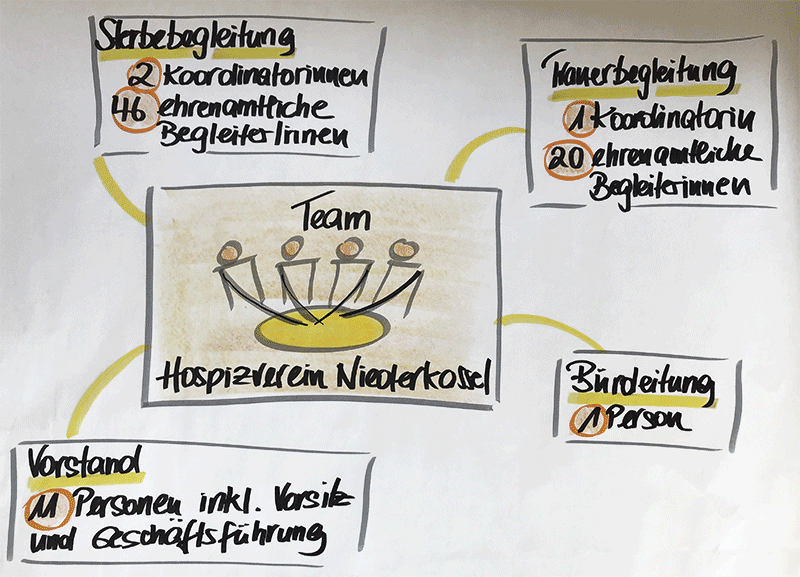 Sterbebegleitung
2 Koordinatorinnen
46 ehrenamtliche
BegleiterInnen
Trauerbegleitung
1 Koordinatorin
20 ehrenamtliche
Begleiterinnen
Team
Hospizverein Niederkassel
Büroleitung
1 Person
Vorstand
11 Personen inkl. Vorsitz
und Geschäftsführung